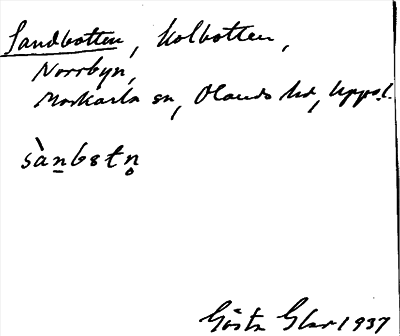 Sandbotten, Kolbotten,
Norrbyn,
Morkarla sn, Olands hd, Uppsl.
sànbɛtn̥
Gösta Glar 1937